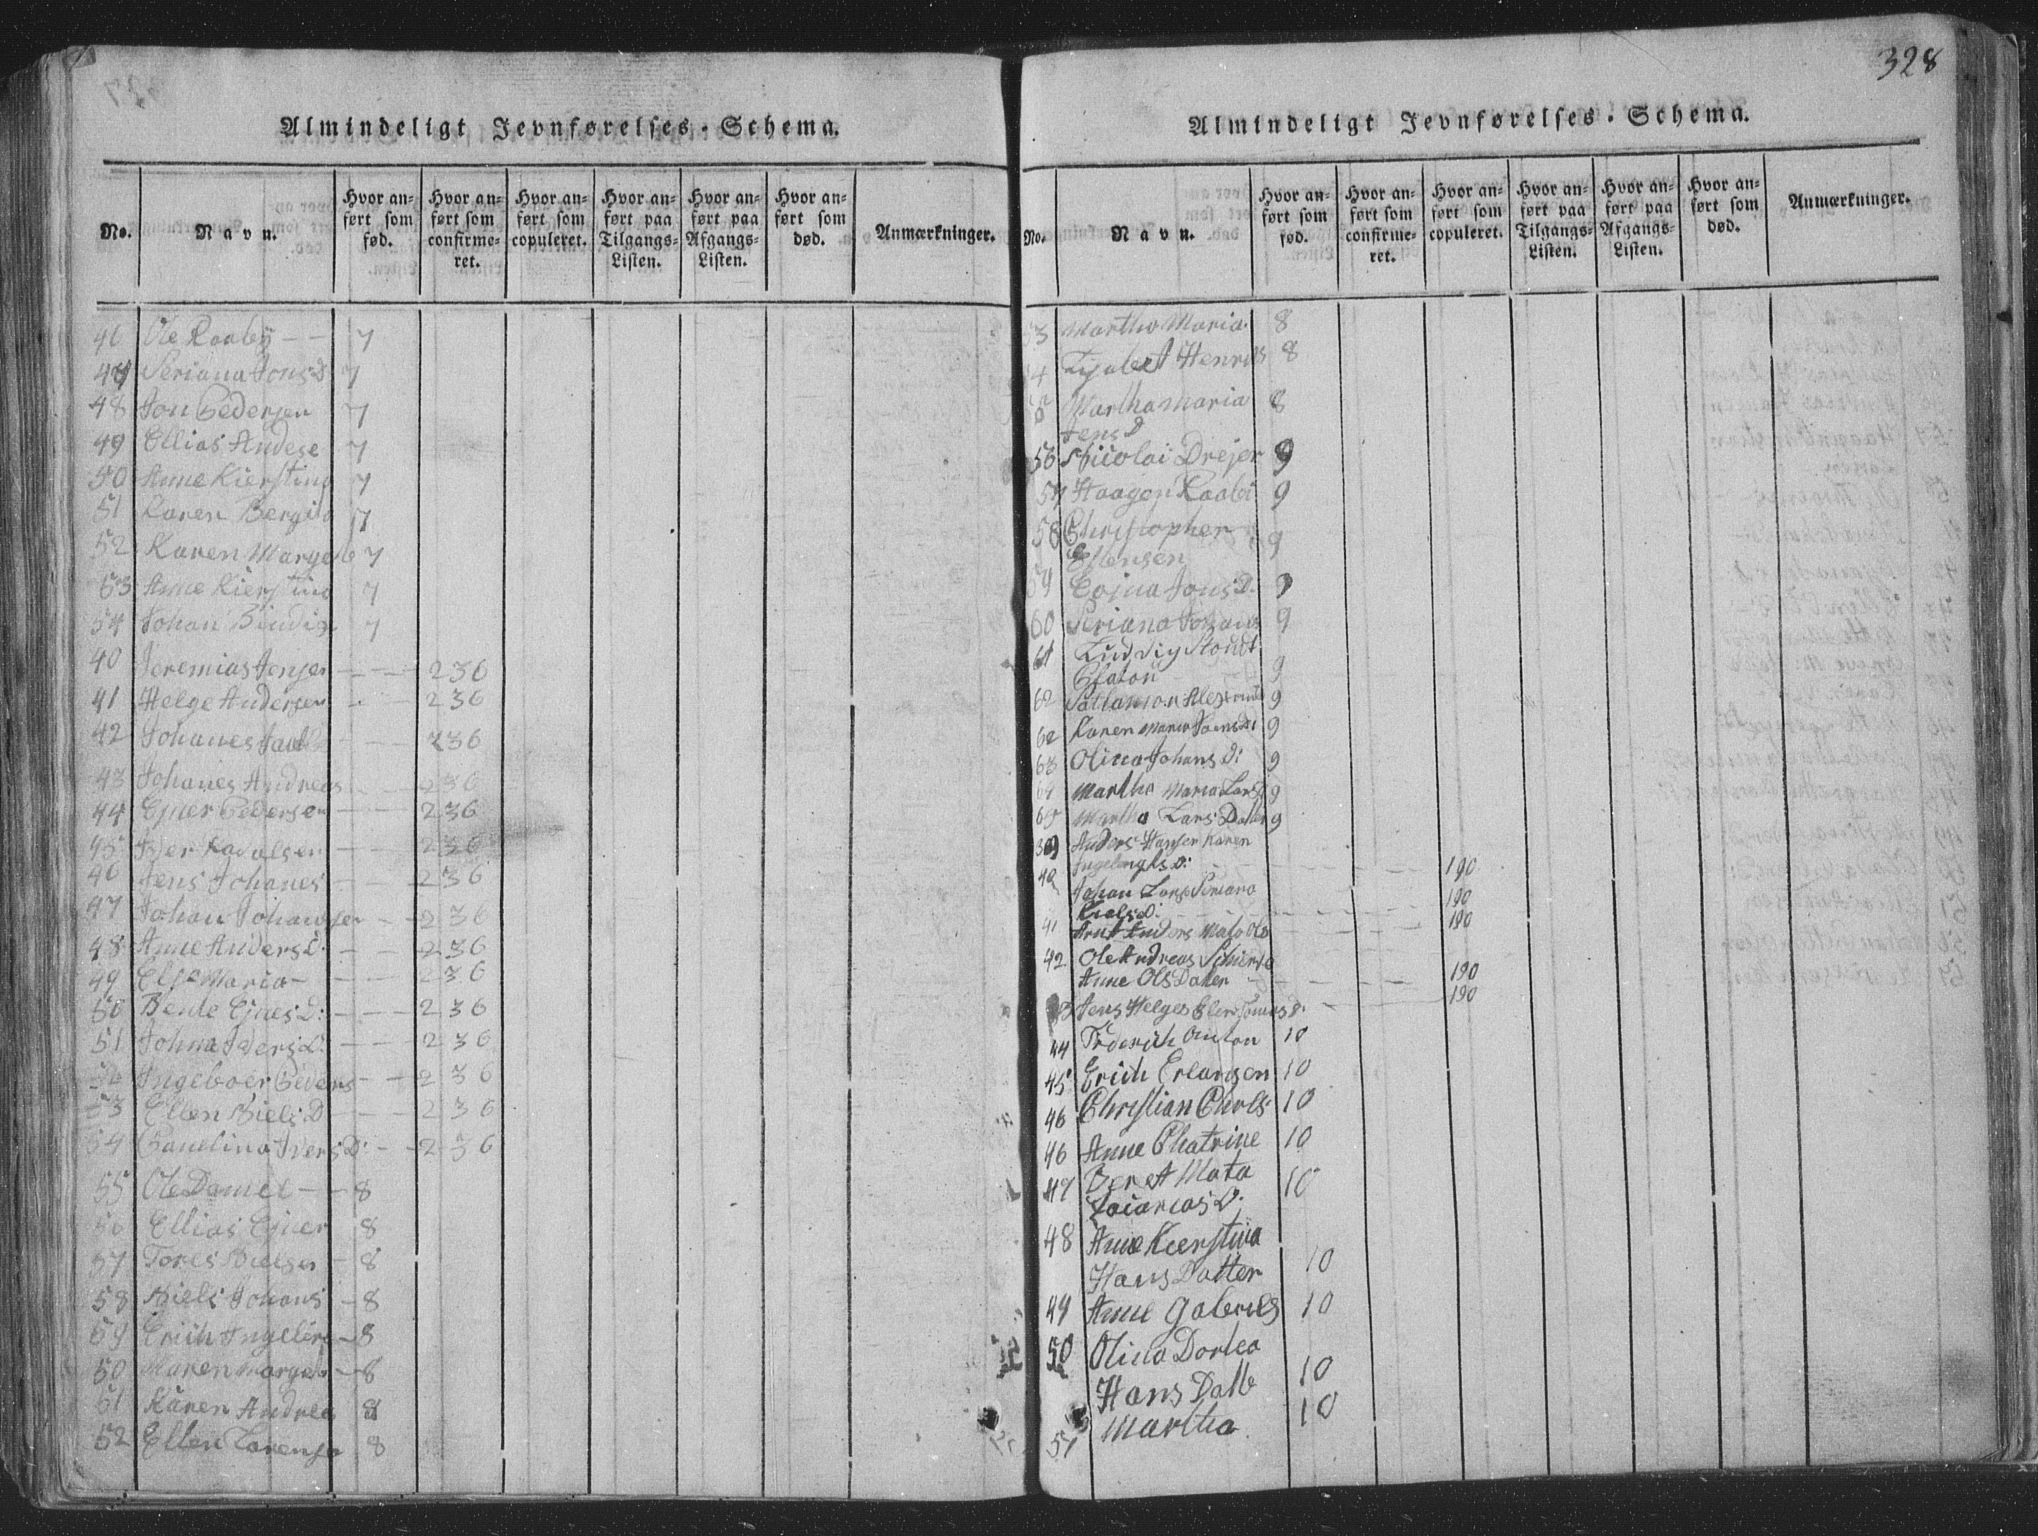 328
Almindeligt Jevnførelses-Schema.
No.
Navn.
Hvor anført som fød.
Hvor anført som confirmeret.
Hvor anført som copuleret.
Hvor anført paa Tilgangs-Listen.
Hvor anført paa Afgangs-Listen.
Hvor anført som død.
Anmærkninger.
46 Ole Raaby - - 7
47 Seriana Jons D 7
48 Jon Pedersen 7
49 Ellias Andese 7
50 Anne Kierstina 7
51 Karen Bergita 7
52 Karen Margeb 7
53 Anne Kierstina 7
54 Johan 7
40 Jeremias Jenser - - - 236
41 Helge Andersen - - 236
42 Johanes - - 236
43 Johanes Andreas - - 236
44 Ejner Pedersen - - 236
45 Iver - - 236
46 Jens Johanes - - 236
47 Johan Johanser - - 236
48 Anne Anders D: - - 236
49 Else Maria - - - 236
50 Bende Ejners D: - - - 236
51 Johna Ivers D: - - - 236
52 Ingeboer Peders - - 236
53 Ellen Niels D - - - 236
54 Paulina Ivers D: - - 236
55 Ole Daniel - - 8
56 Ellias Ejner 8
57 Tores Nielser - 8
58 Niels Johans - 8
59 Erich Ingebre - 8
50 Maren Margeb - 8
51 Karen Andrea 8
52 Ellen Lorense 8
Almindeligt Jevnførelses-Schema.
No.
Navn.
Hvor anført som fød.
Hvor anført som confirmeret.
Hvor anført som copuleret.
Hvor anført paa Tilgangs-Listen.
Hvor anført paa Afgangs-Listen.
Hvor anført som død.
Anmærkninger.
53 Martha Maria 8
54 Henriks 8
Martha Maria 8
Jens D
56 Nicolai Drejer 9
57 Haagen Raabi 9
58 Christopher 9
Estensen
59 Jons D. 9
60 Seriana Johans 9
61 Ludvig
Claton 9
62 Sallamon Alexander 9
62 Karen Maria Joens D: 9
63 Olina Johans D: 9
64 Martha Maria Lars D 9
65 Martha Lars Datter 9
39 Anders Hanser Karen
Ingebregts D: 190
40 Johan Lars Seriana
Niels D: 190
41 Arnt Anders Mate Ols 190
42 Ole Andreas
Anne Ols Datter 190
43 Jens Helges Elen Tomas D: 190
44 Frderich Anton 10
45 Erich Erlansen 10
46 Christian Charls 10
46 Anne Chatrine 10
47 Beret Mata 10
Zacarias D.
48 Anne Kierstina
Hans Datter 10
49 Anne Gabriels 10
50 Olina Dortea
Hans Datt 10
51 Martha 10